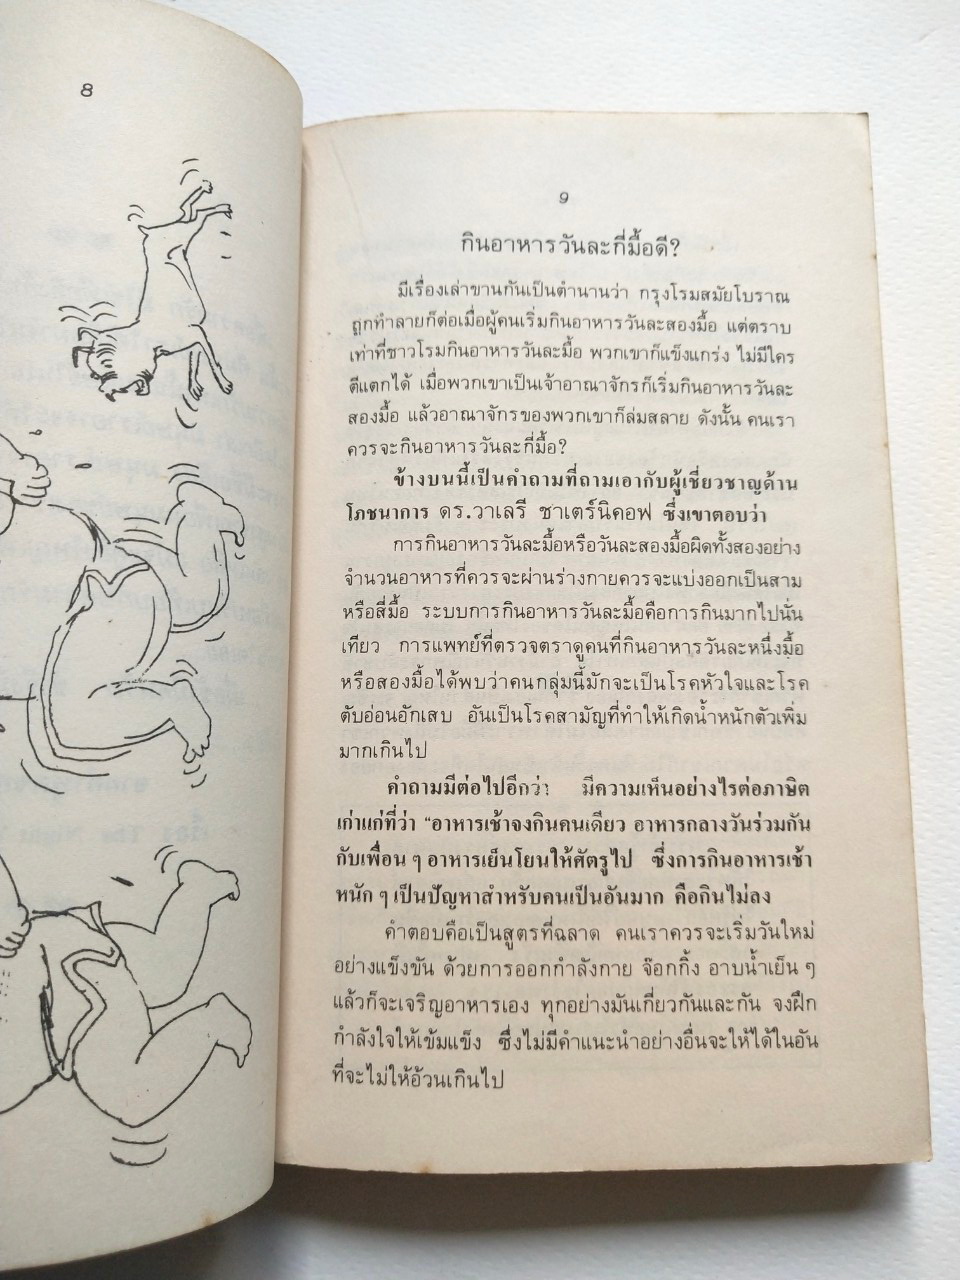 8
9
กินอาหารวันละกี่มื้อดี?
มีเรื่องเล่าขานกันเป็นตำนานว่า กรุงโรมสมัยโบราณ
ถูกทำลายก็ต่อเมื่อผู้คนเริ่มกินอาหารวันละสองมื้อ แต่ตราบ
เท่าที่ชาวโรมกินอาหารวันละมื้อ พวกเขาก็แข็งแกร่ง ไม่มีใคร
ตีแตกได้ เมื่อพวกเขาเป็นเจ้าอาณาจักรก็เริ่มกินอาหารวันละ
สองมื้อ แล้วอาณาจักรของพวกเขาก็ล่มสลาย ดังนั้น คนเรา
ควรจะกินอาหารวันละกี่มื้อ?
ข้างบนนี้เป็นคำถามที่ถามเอากับผู้เชี่ยวชาญด้าน
โภชนาการ ดร.วาเลรี ชาเตร์นิคอฟ ซึ่งเขาตอบว่า
การกินอาหารวันละมื้อหรือวันละสองมื้อผิดทั้งสองอย่าง
จำนวนอาหารที่ควรจะผ่านร่างกายควรจะแบ่งออกเป็นสาม
หรือสี่มื้อ ระบบการกินอาหารวันละมื้อคือการกินมากไปนั่น
เทียว การแพทย์ที่ตรวจตราดูคนที่กินอาหารวันละหนึ่งมื้อ
หรือสองมื้อได้พบว่าคนกลุ่มนี้มักจะเป็นโรคหัวใจและโรค
ตับอ่อนอักเสบ อันเป็นโรคสามัญที่ทำให้เกิดน้ำหนักตัวเพิ่ม
มากเกินไป
คำถามมีต่อไปอีกว่า มีความเห็นอย่างไรต่อภาษิต
เก่าแก่ที่ว่า "อาหารเช้าจงกินคนเดียว อาหารกลางวันร่วมกัน
กับเพื่อน ๆ อาหารเย็นโยนให้ศัตรูไป ซึ่งการกินอาหารเช้า
หนัก ๆ เป็นปัญหาสำหรับคนเป็นอันมาก คือกินไม่ลง
คำตอบคือเป็นสูตรที่ฉลาด คนเราควรจะเริ่มวันใหม่
อย่างแข็งขัน ด้วยการออกกำลังกาย จ๊อกกิ้ง อาบน้ำเย็น ๆ
แล้วก็จะเจริญอาหารเอง ทุกอย่างมันเกี่ยวกันและกัน จงฝึก
กำลังใจให้เข้มแข็ง ซึ่งไม่มีคำแนะนำอย่างอื่นจะให้ได้ในอัน
ที่จะไม่ให้อ้วนเกินไป